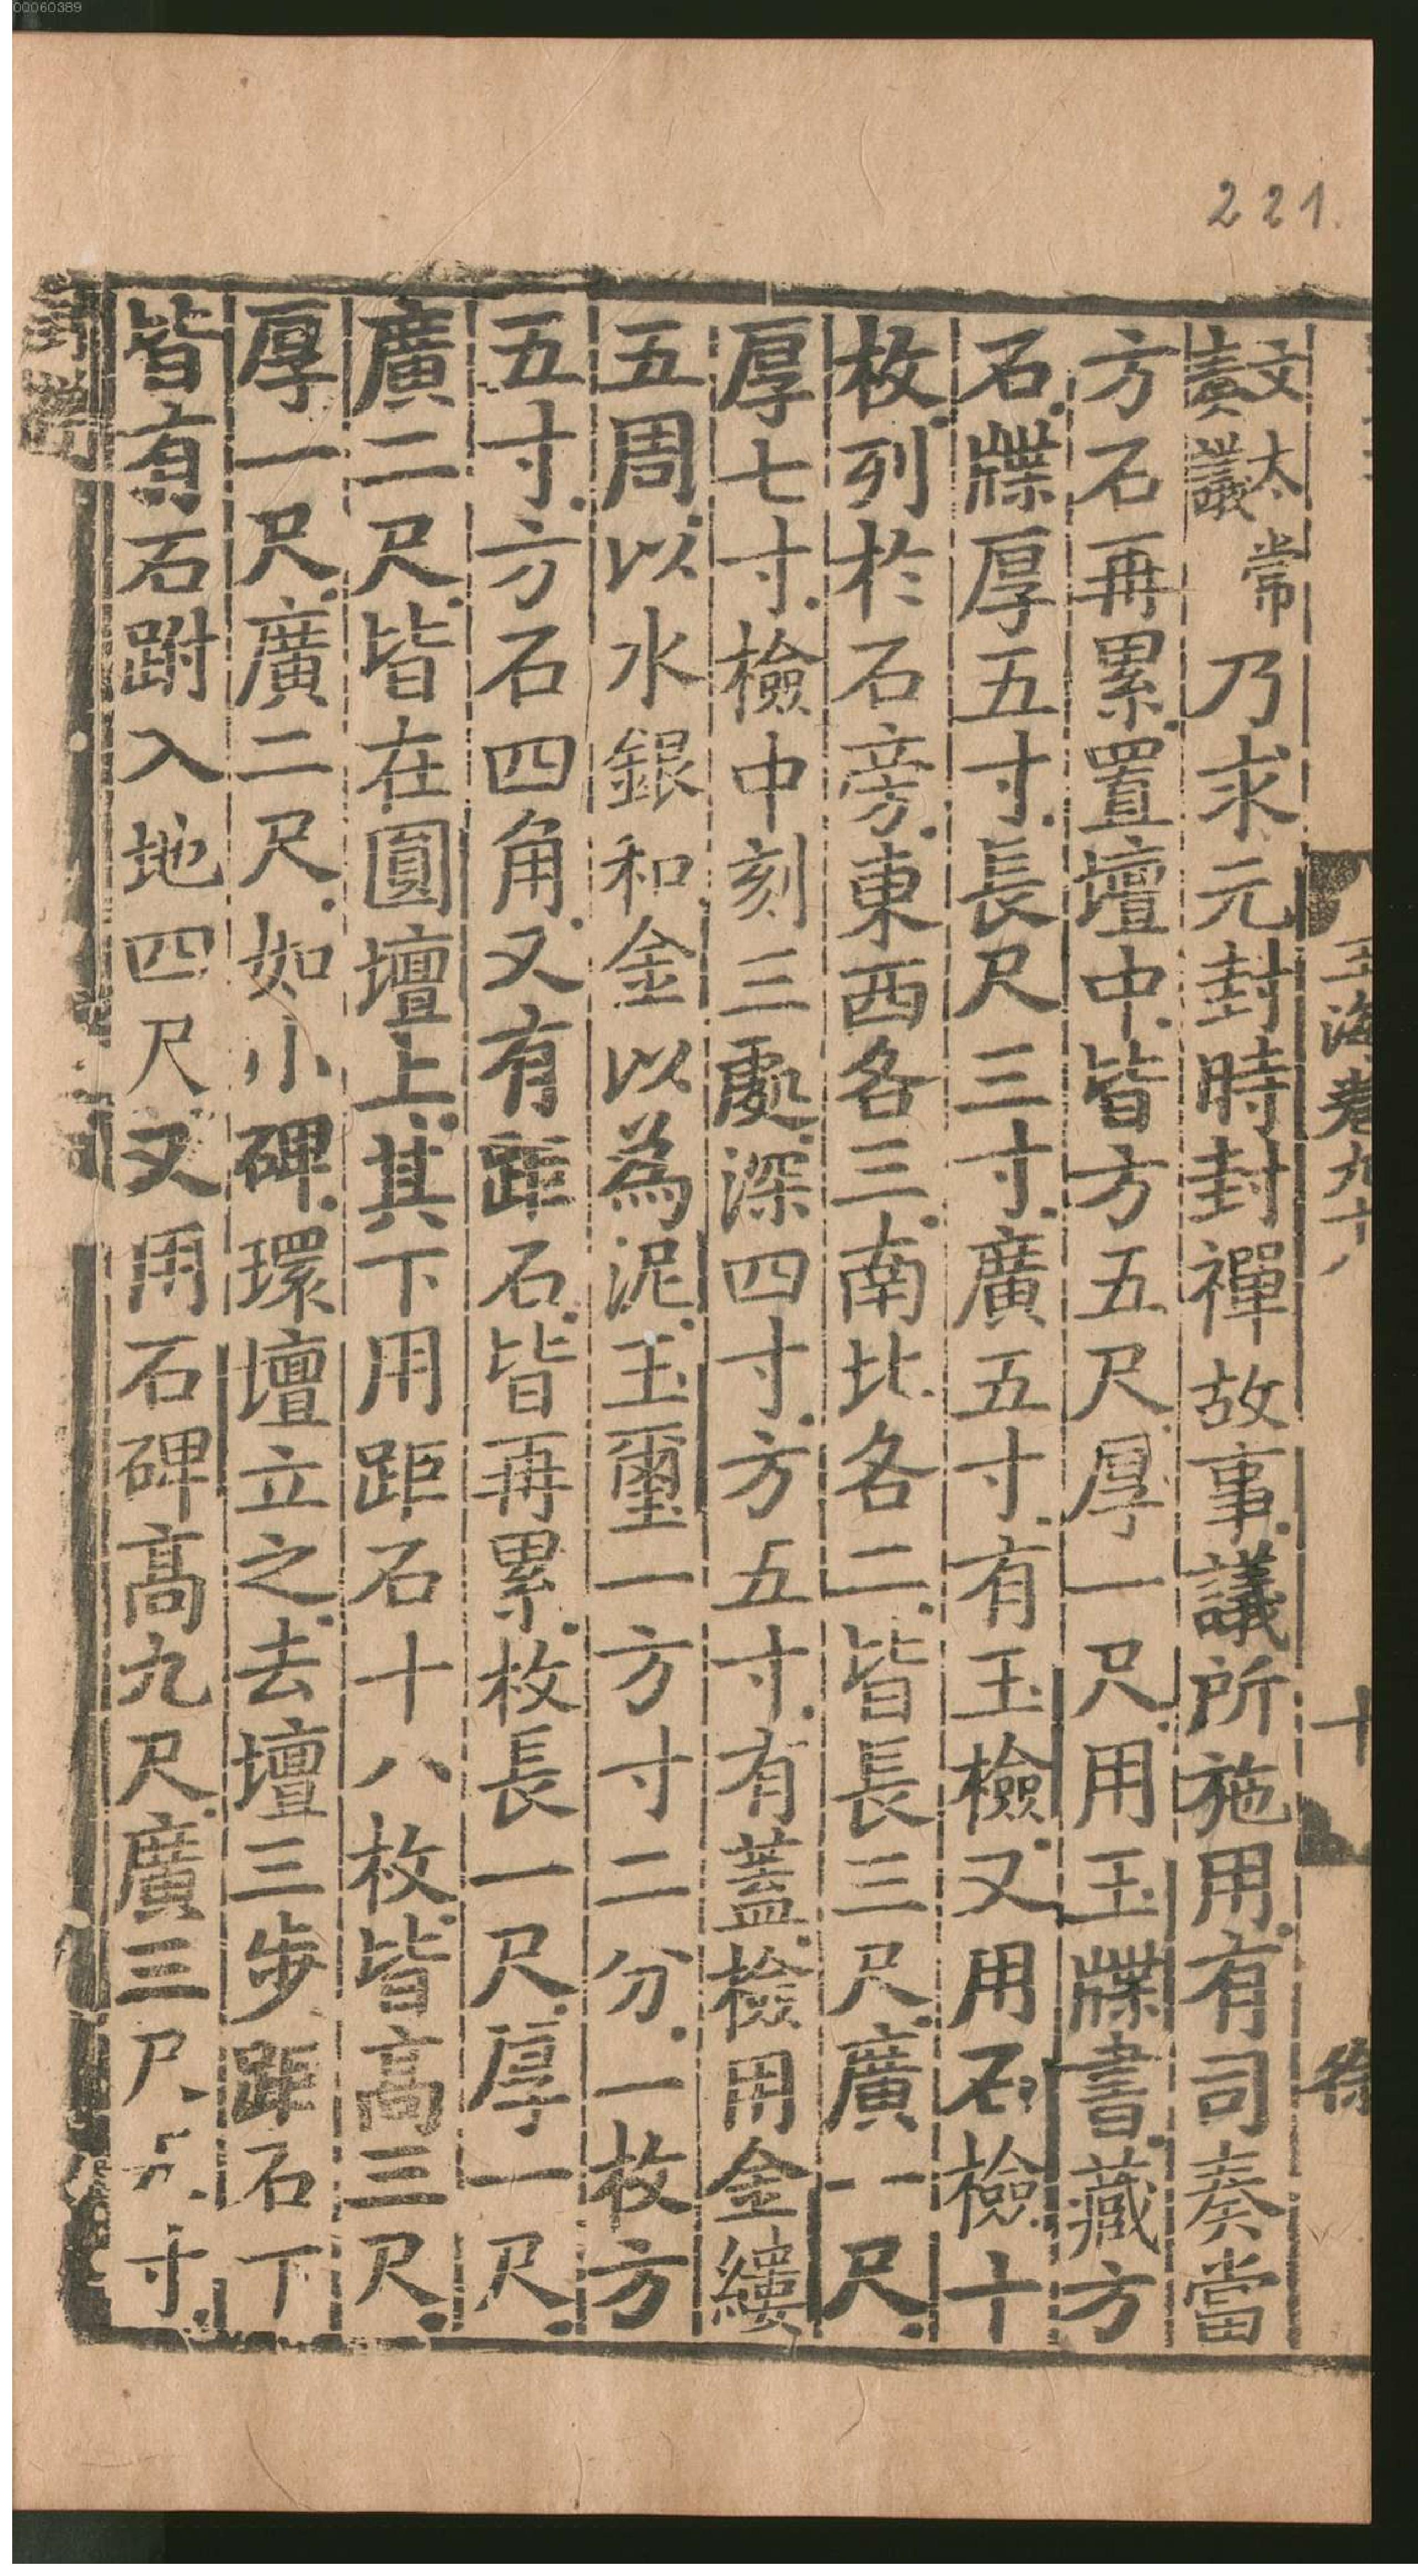 00060389
221.
玉海卷九十八
十
徐
文太常
奏議
乃求元封時封禪故事議所施用有司奏當
方石再累置壇中皆方五尺厚一尺用玉牒書藏方
石牒厚五寸長尺三寸廣五寸有玉檢又用石檢十
枚列於石旁東西各三南北各二皆長三尺廣一尺
厚七寸檢中刻三處深四寸方五寸有蓋檢用金縷
五周以水銀和金以為泥玉璽一方寸二分一枚方
五寸方石四角又有距石皆再累枚長一尺厚一尺
廣二尺皆在圓壇上其下用距石十八枚皆高三尺
厚一尺廣二尺如小碑環壇立之去壇三步距石下
皆有石跗入地四尺又用石碑高九尺廣三尺五寸
封禪